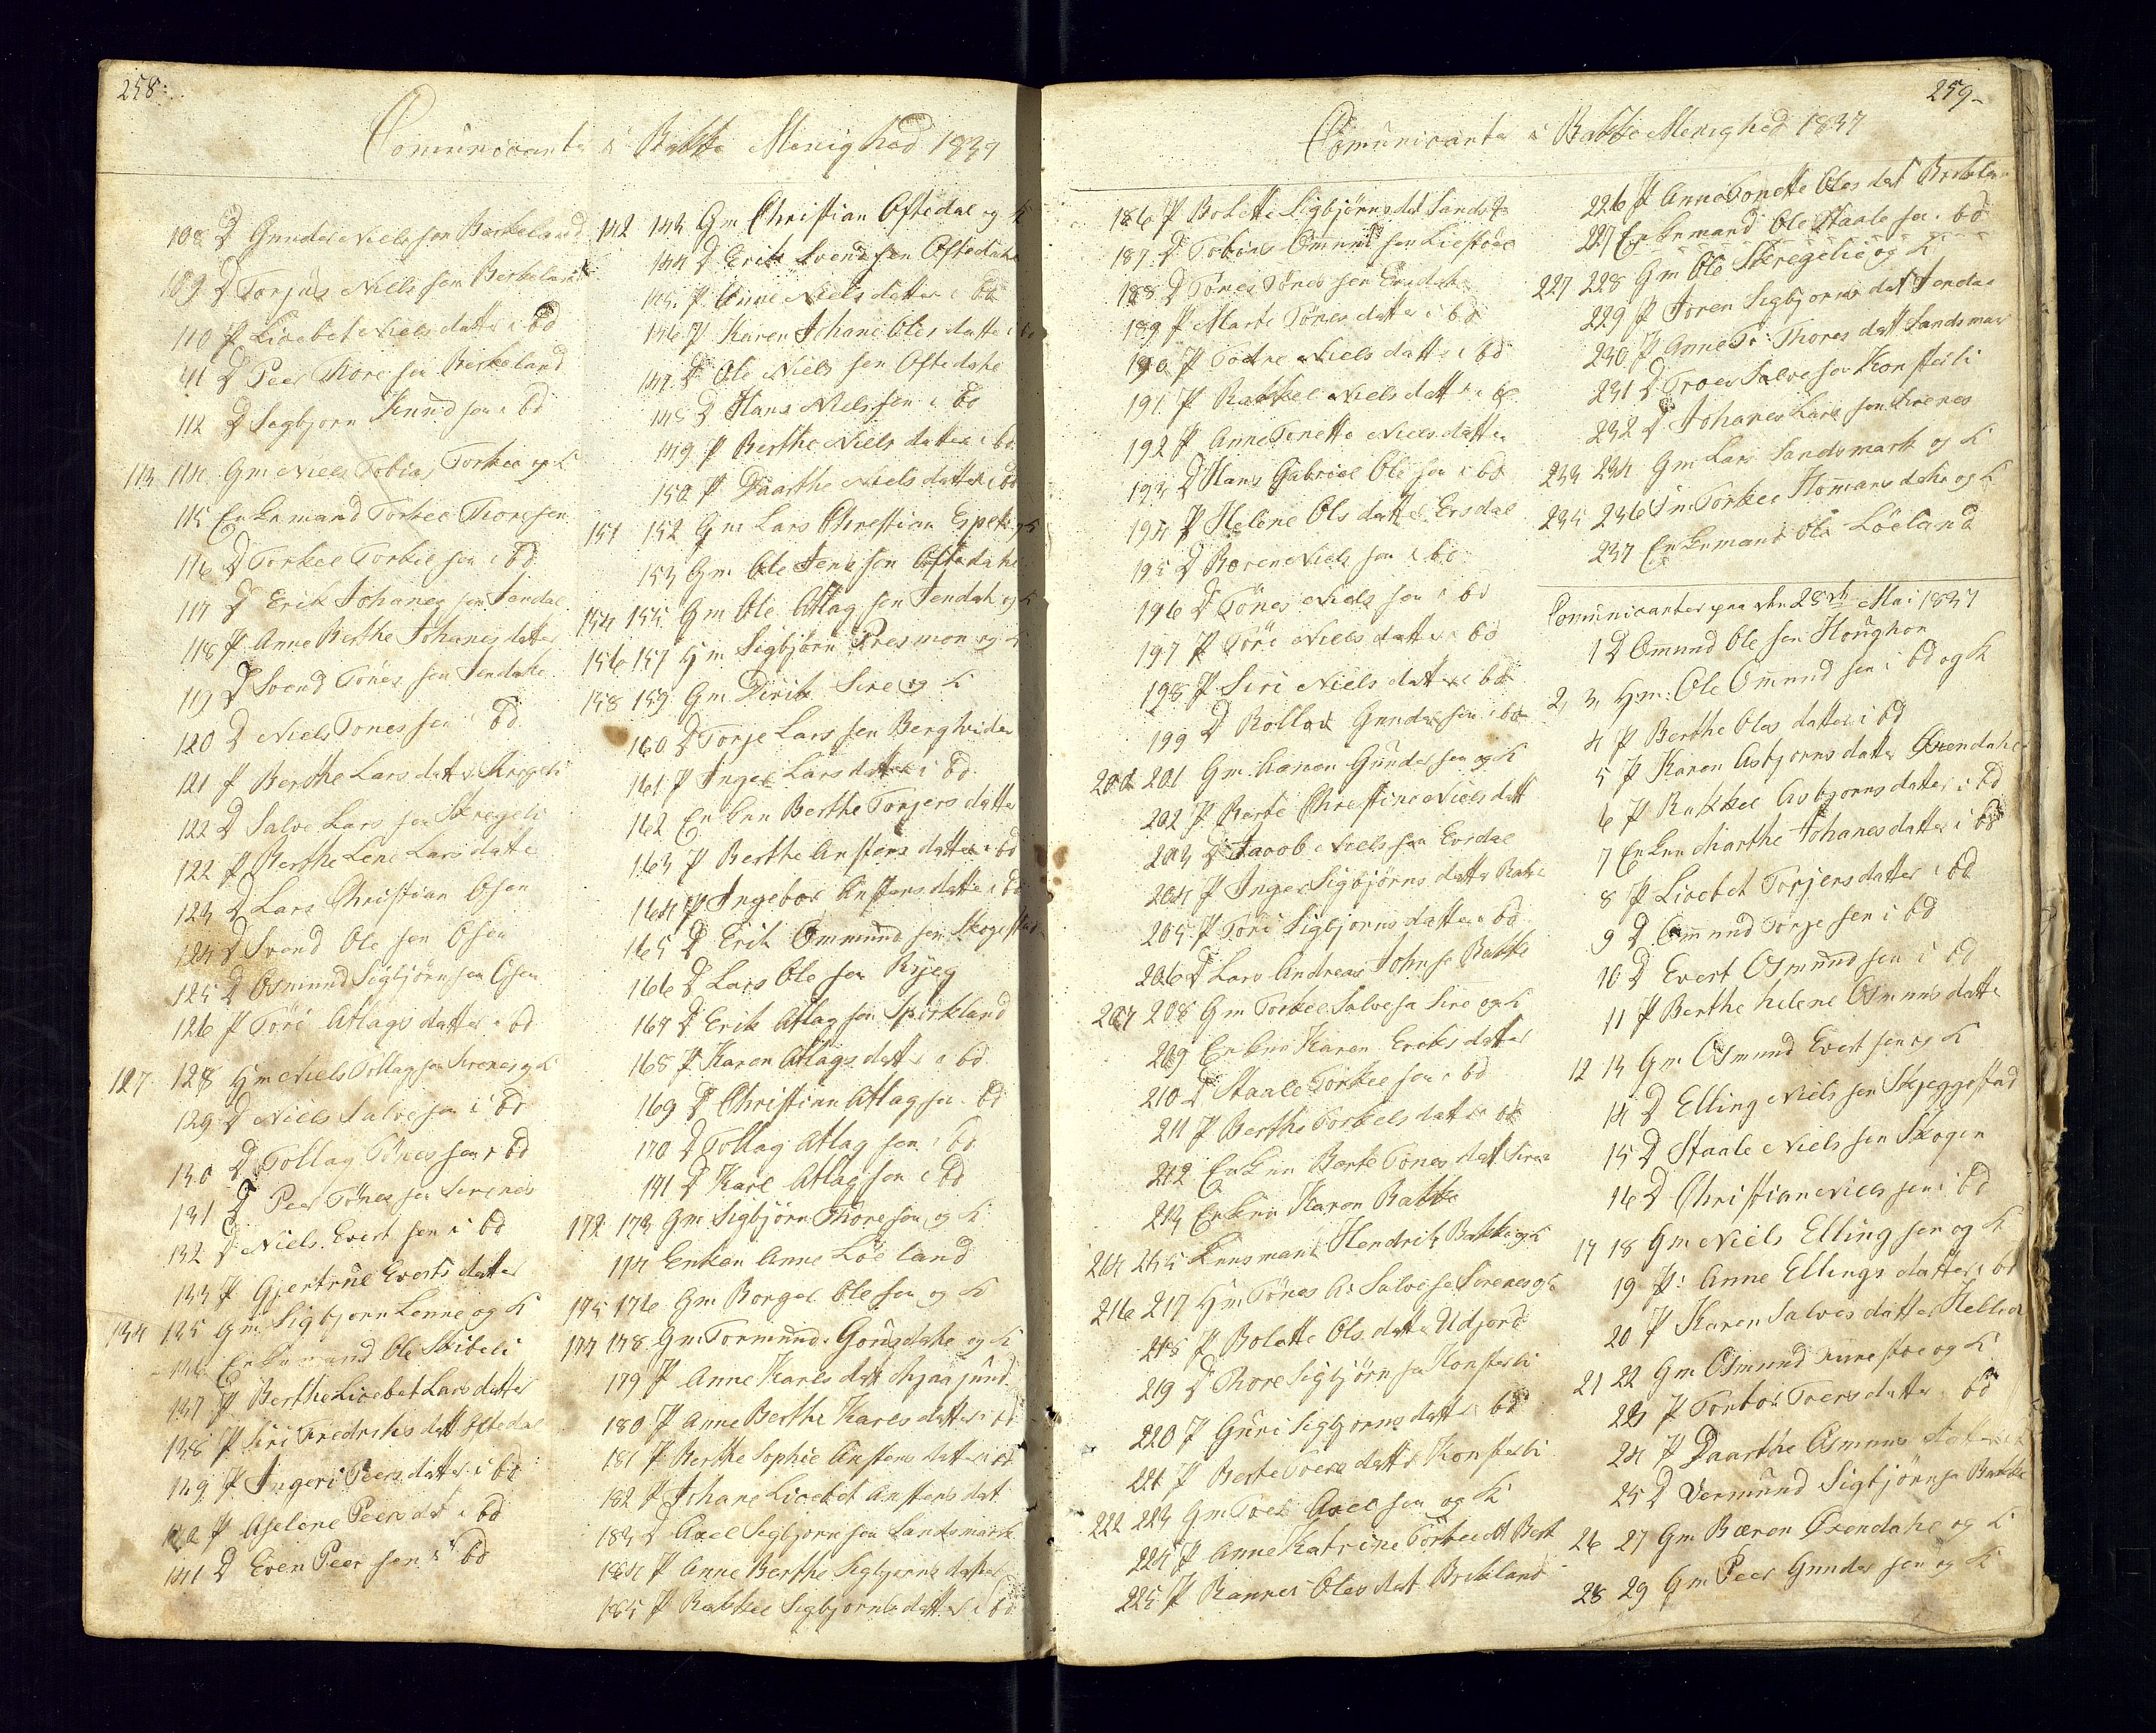 258:
Comunicanter i Bakke Menighed 1837
108 D Gunder Niels sen Berkeland
109 D Torjus Niels sen Berkeland
110 P Lisebet Niels datter i bd
111 D Peer Thore sen Berkeland
112 D Sigbjorn Knud sen i bd
113 114 Gm Niels Tobias Torkel og K
115 Enkemand Torkel Thore sen
116 D Torkel Torkel sen i bd
117 D Erik Johanes sen Jendal
118 P Anne Berthe Johanes datter
119 D Svend Tönes sen Jendahl
120 D Niels Tones sen i bd
121 P Berthe Lars datter Skregeli
122 D Salve Lars sen Skregeli
122 P Berthe Lene Lars datter
123 D Lars Christian Osen
124 D Svend Ole sen Osen
125 D Osmund Sigbjörn sen Osen
126 P Töre Atlags datter i bd
127 128 Gm Niels Tollag sen Sirenes og K
129 D Niels Salve sen i bd
130 D Tollag Tönes sen i bd
131 D Peer Tönes sen Sirenes
132 D Niels Evert sen i bd
133 P Gjertrue Everts datter
134 135 Gm Sigbjorn Lenne og K
136 Enkemand Ole Skibeli
137 P Berthe Lisebet Lars datter
138 P Siri Fredriks datt Oftedal
139 P Ingeri Peers datter i bd
140 P Aselene Peers dat i bd
141 D Even Peer sen i bd
142 143 Gm Christian Oftedal og K
144 D Erik Svend sen Oftedahl
145 P Anne Niels datter i bd
146 P Karen Johane Oles datter i bd
147 D Ole Niels sen Oftedahl
148 D Hans Niels sen i bd
149 P Berthe Niels datter i bd
150 P Daarthe Niels datter i bd
151 152 Gm Lars Christian Espeli og K
153 Gm Ole Jens sen Oftedahl
154 155 Gm Ole Atlag sen Jendah og K
156 157 Gm Sigbjörn Presmon og K
158 159 Gm Dirik Sire og K
160 D Torje Lars sen Berghvider
161 P Inger Lars datter i bd
162 Enken Berthe Torjers datter
163 P Berthe Anstens datter i bd
164 P Ingebor Anstens datter i bd
165 D Erik Ommund sen Skogestad
166 D Lars Ole sen Ryeg
167 D Erik Atlag sen Spirkland
168 P Karen Atlags datter i bd
169 D Christian Atlag sen bd
170 D Tollag Atlag sen i bd
171 D Karl Atlag sen i bd
172 173 Gm Sigbjörn Thore sen og K
174 Enken Anne Löeland
175 176 Gm Borgel Ole sen og K
177 178 Gm Tormund Gousdahl og K
179 P Anne Karls datt
180 P Anne Berthe Karls datter i bd
181 P Berthe Sophie Anstens datter i bd
182 P Johane Lisebet Anstens dat
183 D Axel Sigbjorn sen Landsmark
184 P Anne Berthe Sigbjorns datter
185 P Rakkel Sigbjorns datter i bd
259
Comunicanter i Bakke Menighed 1837
186 P Bolette Sigbjörns dat Sands
187 D Tobias Ommund sen Liestöel
188 D Tönes Tönes sen Ersdal
189 P Marte Tönes datter i bd
190 P Todne Niels datter i bd
191 P Rakkel Niels datter i bd
192 P Anne Tonette Niels datter
193 D Hans Gabriel Ole sen i bd
194 P Helene Ols datter Ersdal
195 D Boren Niels sen i bd
196 D Tönes Niels sen i bd
197 P Töre Niels datter i bd
198 P Siri Niels datter i bd
199 D Rollov Gunder sen i bd
200 201 Gm Aanon Gunder sen og K
202 P Berte Christine Niels datt
203 D Jacob Niels sen Ersdal
204 P Inger Sigbjörns datter Bakke
205 P Töre Sigbjorns datter i bd
206 D Lars Andreas John s Bakke
207 208 Gm Torkel Salve sen Sire og K
209 Enken Karen Eriks datter
210 D Staale Torkel sen i bd
211 P Berthe Torkels datter i bd
212 Enken Berte Tönes dat Sire
213 Enken Karen Bakke
214 215 Huusmand Hendrik Bakke og K
216 217 Gm Tönes A: Salve sen Sirenes og K
218 P Bolette Ols datter Udjord
219 D Thore Sigbjörn sen Konsterli
220 P Guri Sigbjorns datter bd
221 P Berte Toers datter Konsterli
222 223 Gm Toer Axel sen og K
224 P Anne Katrine Torkel dt Berk
225 P Rannei Oles dat Birkland
226 P Anne Tonette Oles dat Birkland
227 Enkemand Ole Staale sen i bd
227 228 Gm Ole Skregelie og K
229 P Joren Sigbjorns dat Jendal
230 P Anne T: Thores datt Landsmar
231 D Troer Salve sen Konsterli
232 D Johanes Lars sen Sirenes
233 234 Gm Lars Landsmark og K
235 236 Gm Torkel Homansdahl og K
237 Enkemand Ole Löeland
Comunicanter paa den 28de Mai 1837
1 D Ommund Ole sen Houghom
2, 3, Gm: Ole Ommund sen i bd og K
4 P Berthe Oles datter i bd
5 P Karen Asbjorns datter Öxendahl
6 P Rakkel Asbjorns datter i bd
7 Enken Marthe Johanes datter i bd
8 P Lisebet Torjers datter i bd
9 D Ommund Torje sen i bd
10 D Evert Osmund sen i bd
11 P Berthe helene Osmuns datter
12 13 Gm Osmund Evert sen og K
14 D Elling Niels sen Skjeggestad
15 D Staale Niels sen Skogen
16 D Christian Niels sen i bd
17 18 Gm Niels Elling sen og K
19 P: Anne Ellings datter i bd
20 P Karen Salves datter Helleren
21 22 Gm Osmund og K
23 P Torbor Toers datter bd
24 P Daarthe Osmuns datter
25 D Vermund Sigbjörn sen Bakke
26 27 Gm Bæren Öxendahl og K
28 29 Gm Peer Gunder sen og K